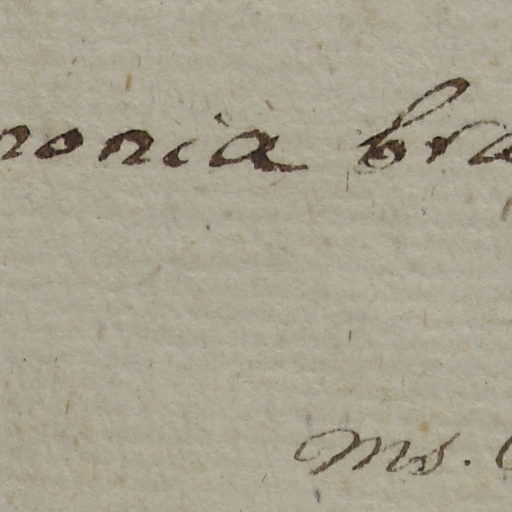 nonia bra
Ms.